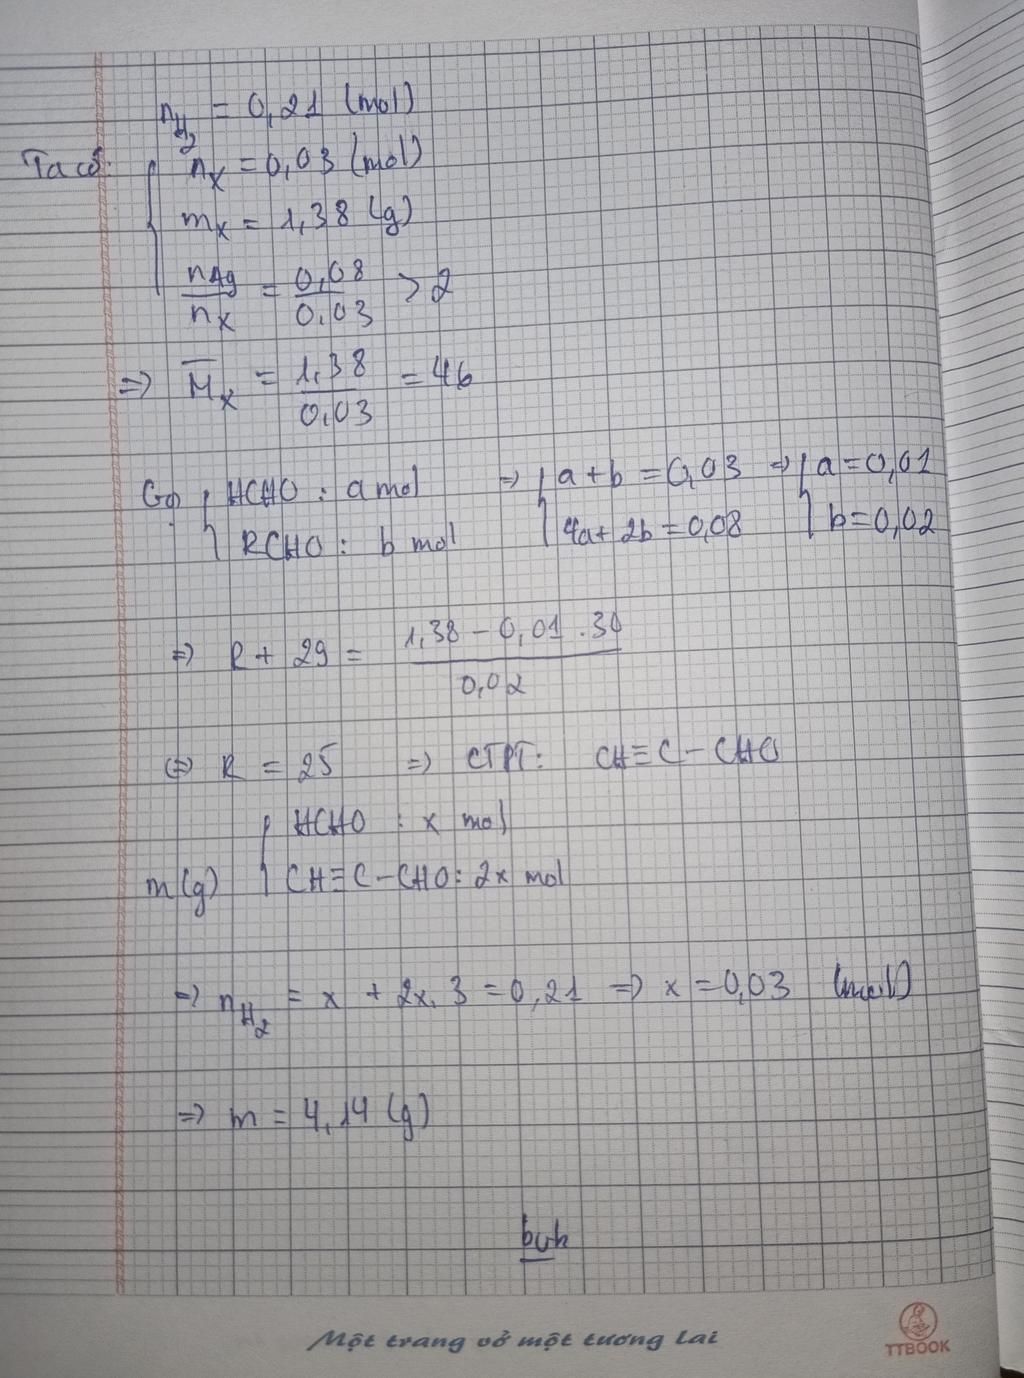 nH₂ = 0,21 (mol)
Ta có: nX = 0,03 (mol)
mX = 1,38 (g)
nAg/nX = 0,08/0,03 > 2
⇒ M̅X = 1,38/0,03 = 46
Gọi { HCHO : a mol ⇒ { a + b = 0,03 ⇒ { a = 0,01
RCHO : b mol 4a + 2b = 0,08 b = 0,02
⇒ R + 29 = (1,38 - 0,01 . 30)/0,02
⇔ R = 25 ⇒ CTPT: CH≡C-CHO
HCHO : x mol
m(g) { CH≡C-CHO : 2x mol
⇒ nH₂ = x + 2x.3 = 0,21 ⇒ x = 0,03 (mol)
⇒ m = 4,14 (g)
buh
Một trang vở một tương lai
TTBOOK